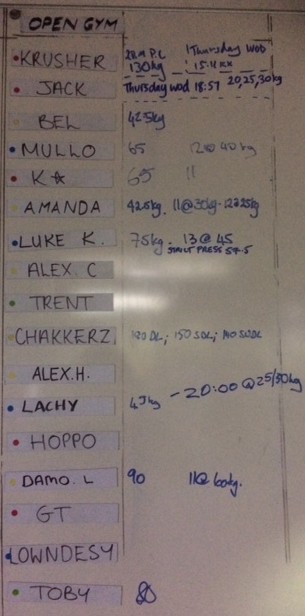 OPEN GYM
KRUSHER 2RM P.C 130kg Thursday WOD
JACK Thursday WOD 18:57 20,25,30kg
BEL 42.5kg
MULLO 65 12@40kg
K☆ 65 11
AMANDA 42.5kg. 11@30kg.
LUKE K. 75kg. 13@45
STRICT PRESS
ALEX. C
TRENT
CHAKKERZ DL; 150 SDL;
ALEX.H.
LACHY kg - 20:00 @ 25/30kg
HOPPO
DAMO. L 90 11@ 60kg.
GT
LOWNDESY
TOBY 80